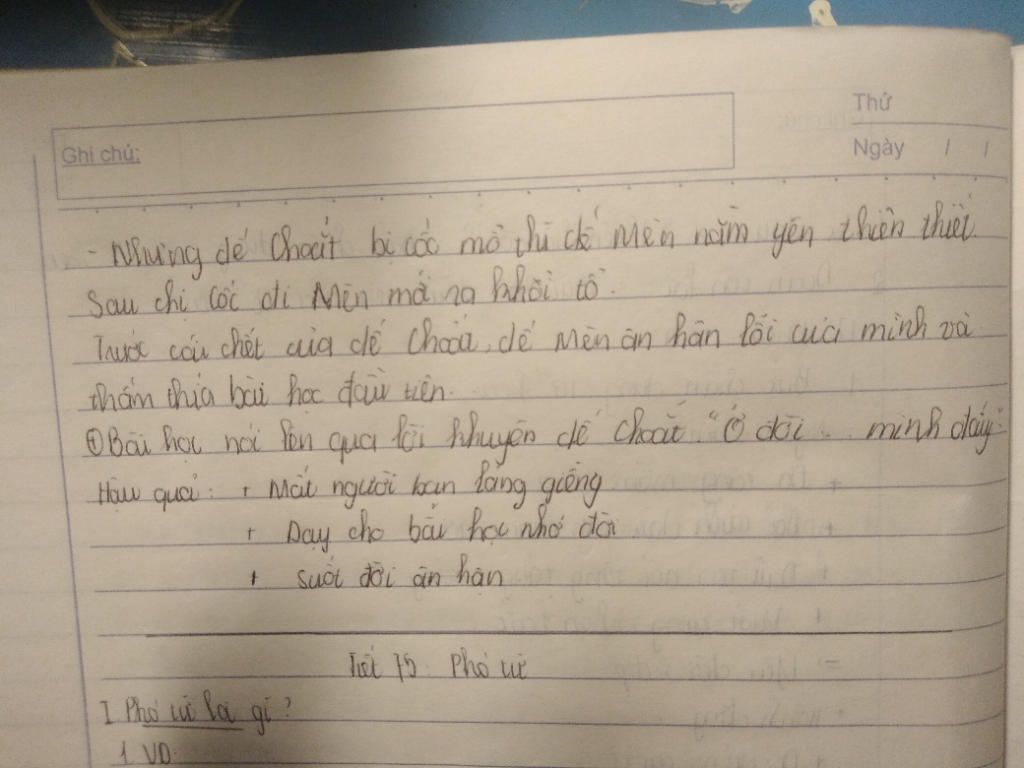 Thứ
Ghi chú:
Ngày / /
- Nhưng dế Choắt bị cốc mổ thì dế Mèn nằm yên thin thít
Sau chị cốc đi Mèn mới ra khỏi tổ.
Trước cái chết của dế Choắt, dế Mèn ân hận lỗi của mình và
thấm thía bài học đầu tiên.
① Bài học nói lên qua lời khuyên dế Choắt "Ở đời .. mình đấy"
Hậu quả: + Mất người bạn láng giềng
+ Dạy cho bài học nhớ đời
+ suốt đời ân hận
Tiết 75: Phó từ
I. Phó từ là gì?
1. VD: